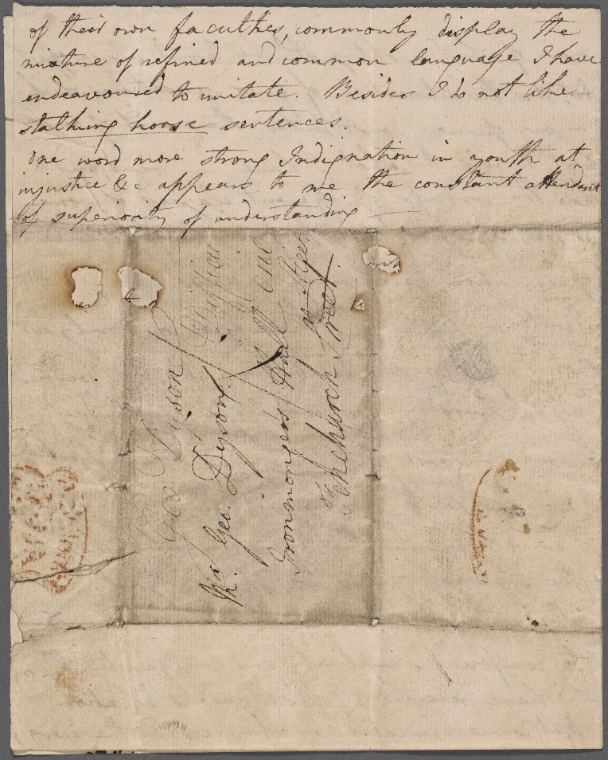 of their own faculties, commonly display the
mixture of refined and common language I have
endeavoured to imitate. Besides I do not like
stalking horse sentences.
One word more strong Indignation in youth at
injustice &c appears to me the constant attendant
of superiority of understanding
Geo Dyson
Mr. Geo. Dyson
Ironmongers Hall
Fenchurch Street.